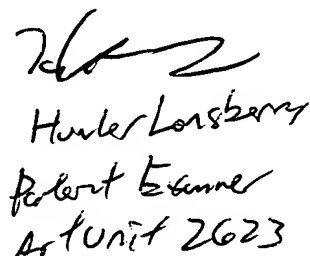 Hunter Lonsberry
Patent Examiner
Art Unit 2623